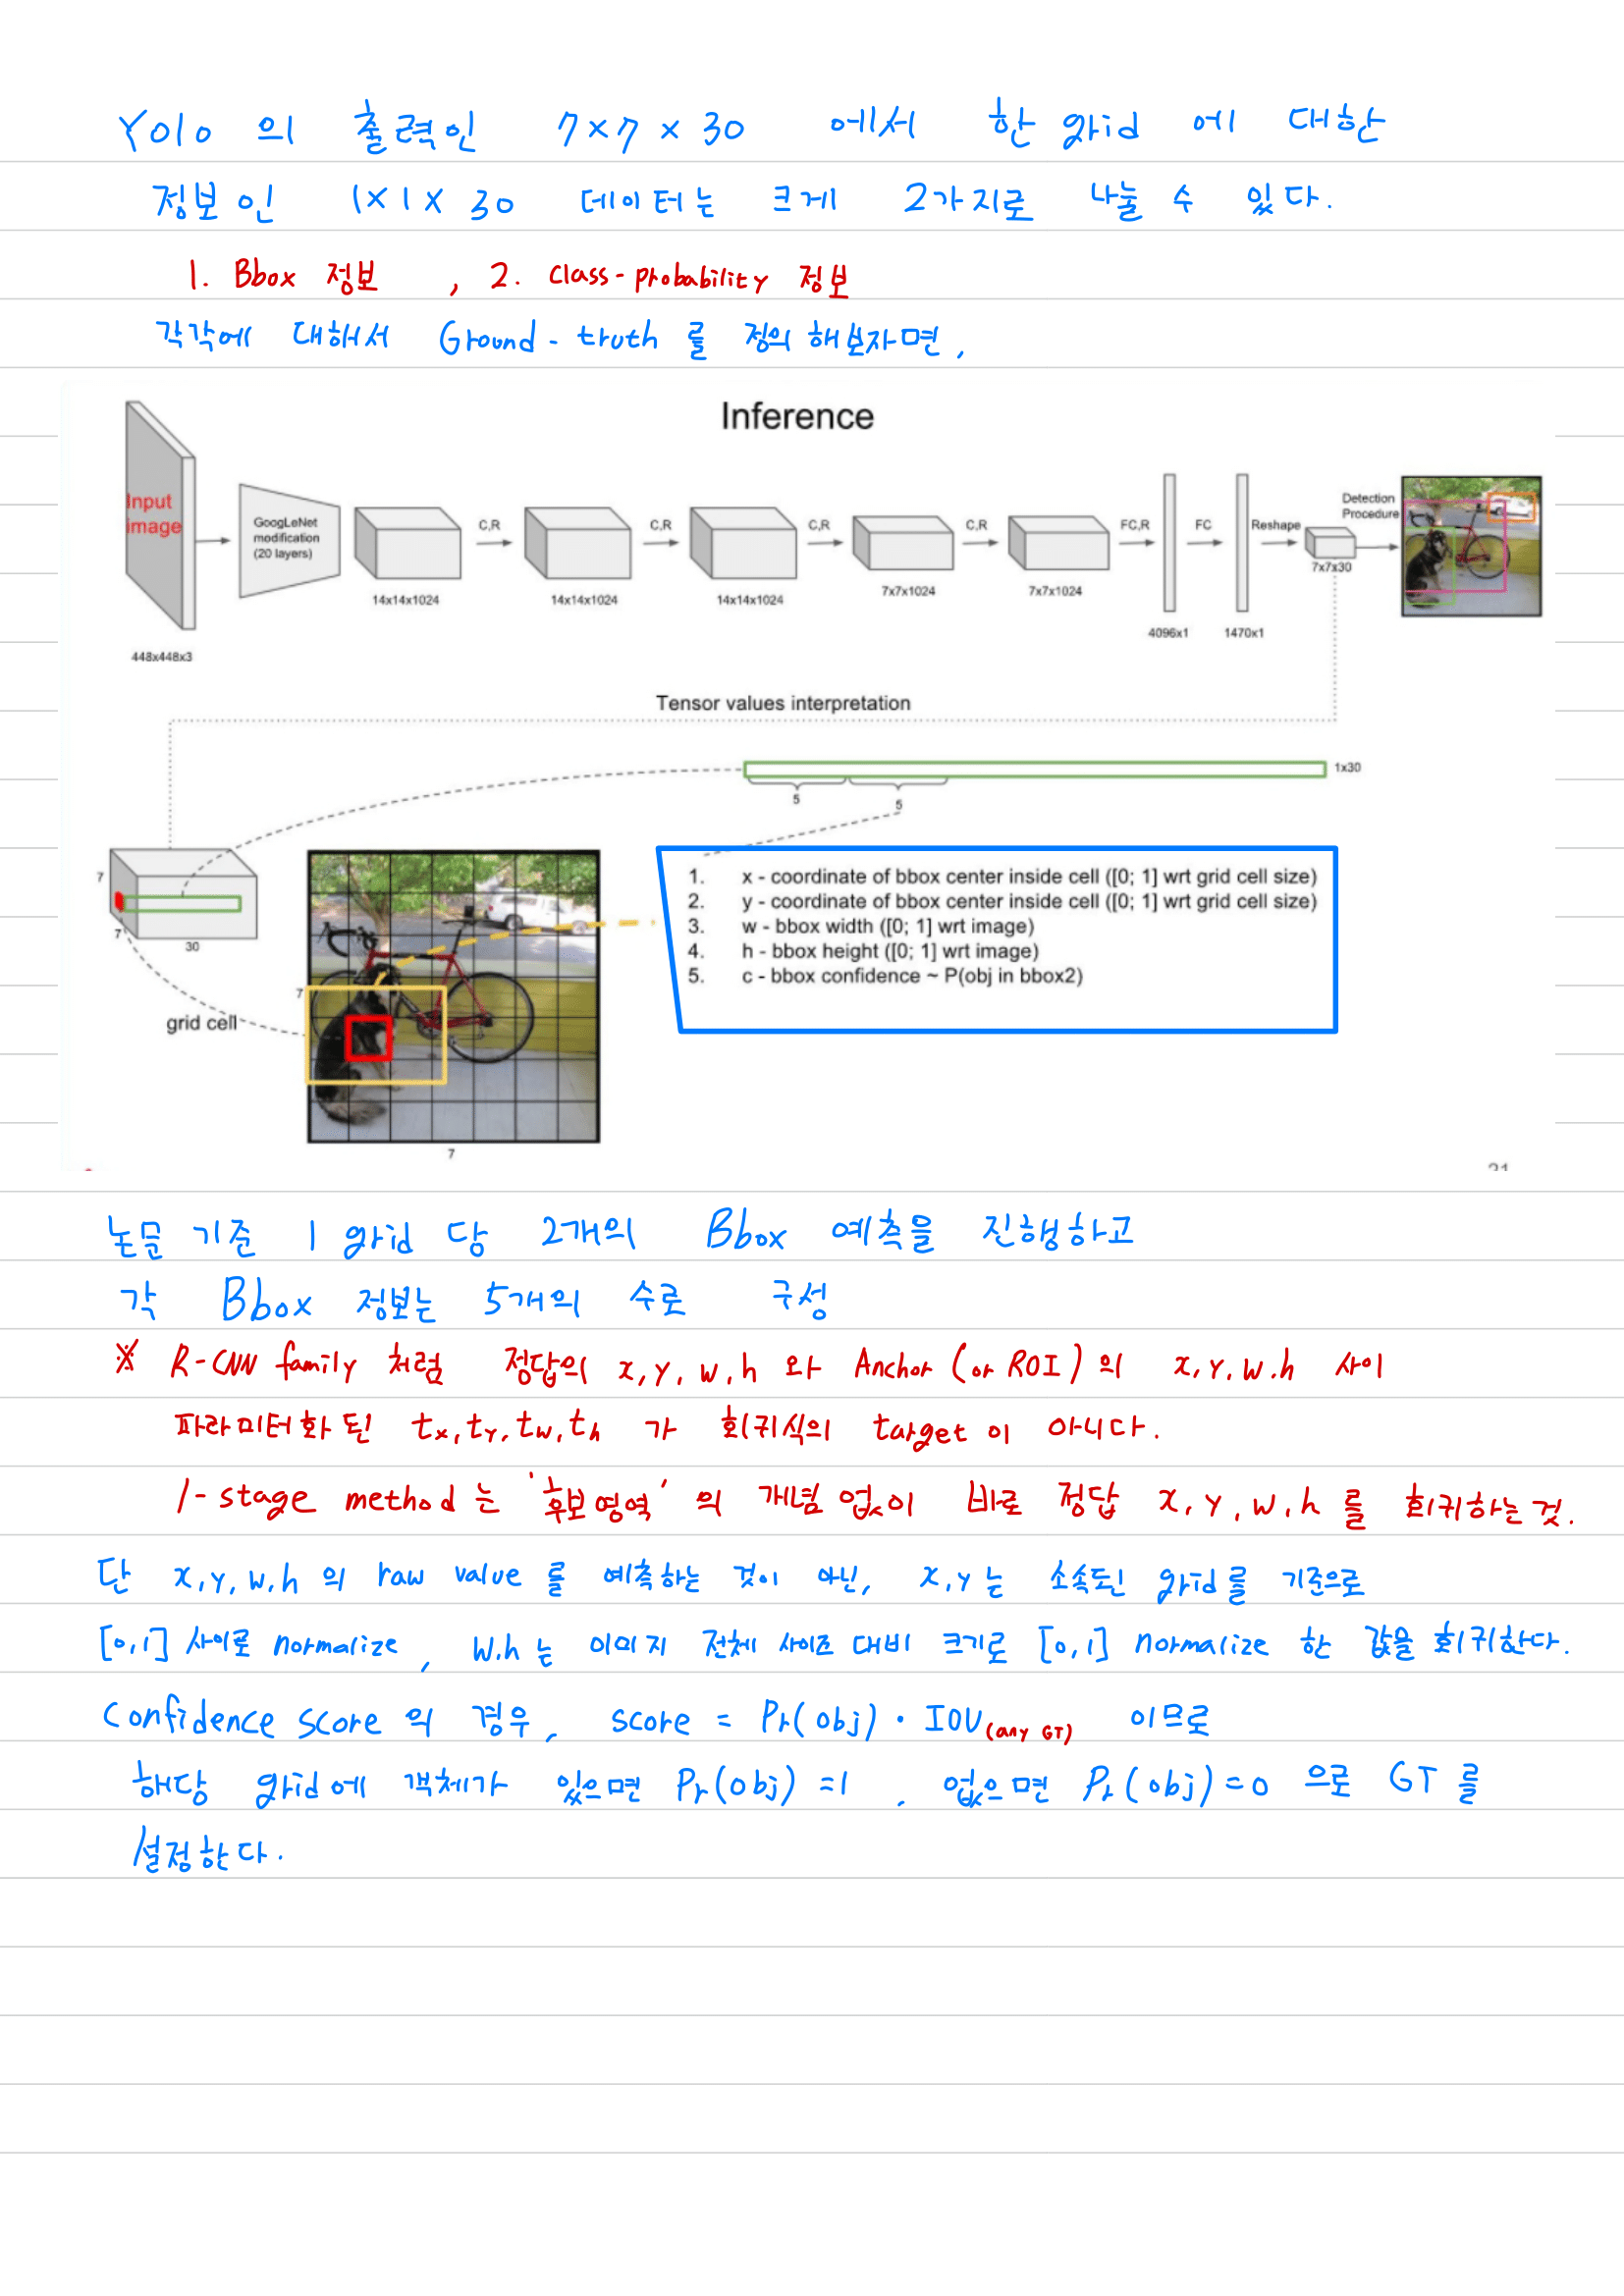 Yolo 의 출력인 7×7×30 에서 한 grid 에 대한
정보인 1×1×30 데이터는 크게 2가지로 나눌 수 있다.
1. Bbox 정보 , 2. Class-probability 정보
각각에 대해서 Ground-truth 를 정의 해보자면,
Inference
Input image
GoogLeNet modification (20 layers)
C,R
C,R
C,R
C,R
FC,R
FC
Reshape
Detection Procedure
448x448x3
14x14x1024
14x14x1024
14x14x1024
7x7x1024
7x7x1024
4096x1
1470x1
7x7x30
Tensor values interpretation
1x30
5
5
7
7
30
grid cell
7
7
1. x - coordinate of bbox center inside cell ([0; 1] wrt grid cell size)
2. y - coordinate of bbox center inside cell ([0; 1] wrt grid cell size)
3. w - bbox width ([0; 1] wrt image)
4. h - bbox height ([0; 1] wrt image)
5. c - bbox confidence ~ P(obj in bbox2)
논문 기준 1 grid 당 2개의 Bbox 예측을 진행하고
각 Bbox 정보는 5개의 수로 구성
※ R-CNN family 처럼 정답의 x, y, w, h 와 Anchor (or ROI) 의 x, y, w, h 사이
파라미터화 된 tx, ty, tw, th 가 회귀식의 target 이 아니다.
1-stage method 는 '후보영역' 의 개념 없이 바로 정답 x, y, w, h 를 회귀하는 것.
단 x, y, w, h 의 raw value 를 예측하는 것이 아닌, x, y 는 소속된 grid를 기준으로
[0,1] 사이로 normalize, w.h 는 이미지 전체 사이즈 대비 크기로 [0,1] normalize 한 값을 회귀한다.
Confidence score 의 경우, score = Pr(obj) · IOU(any GT) 이므로
해당 grid에 객체가 있으면 Pr(obj) =1 , 없으면 Pr(obj)=0 으로 GT 를
설정한다.